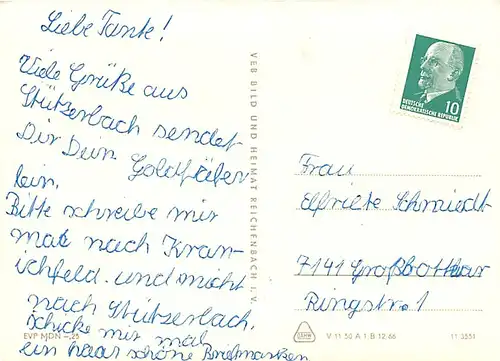 Liebe Tante!
Viele Grüße aus
Stützerbach sendet
Dir Dein Goldtäber
lein.
Bitte schreibe mir
mal nach Kran-
ichfeld und nicht
nach Stützerbach.
schicke mir mal
ein paar schöne Briefmarken
EVP MDN -,25
VEB BILD UND HEIMAT REICHENBACH I. V.
DEUTSCHE
DEMOKRATISCHE REPUBLIK
10
Frau
Elfriete Schmiedt
7141 Großbothar
Ringstr. 1
V 11 50 A 1 B 12/66
11 3551